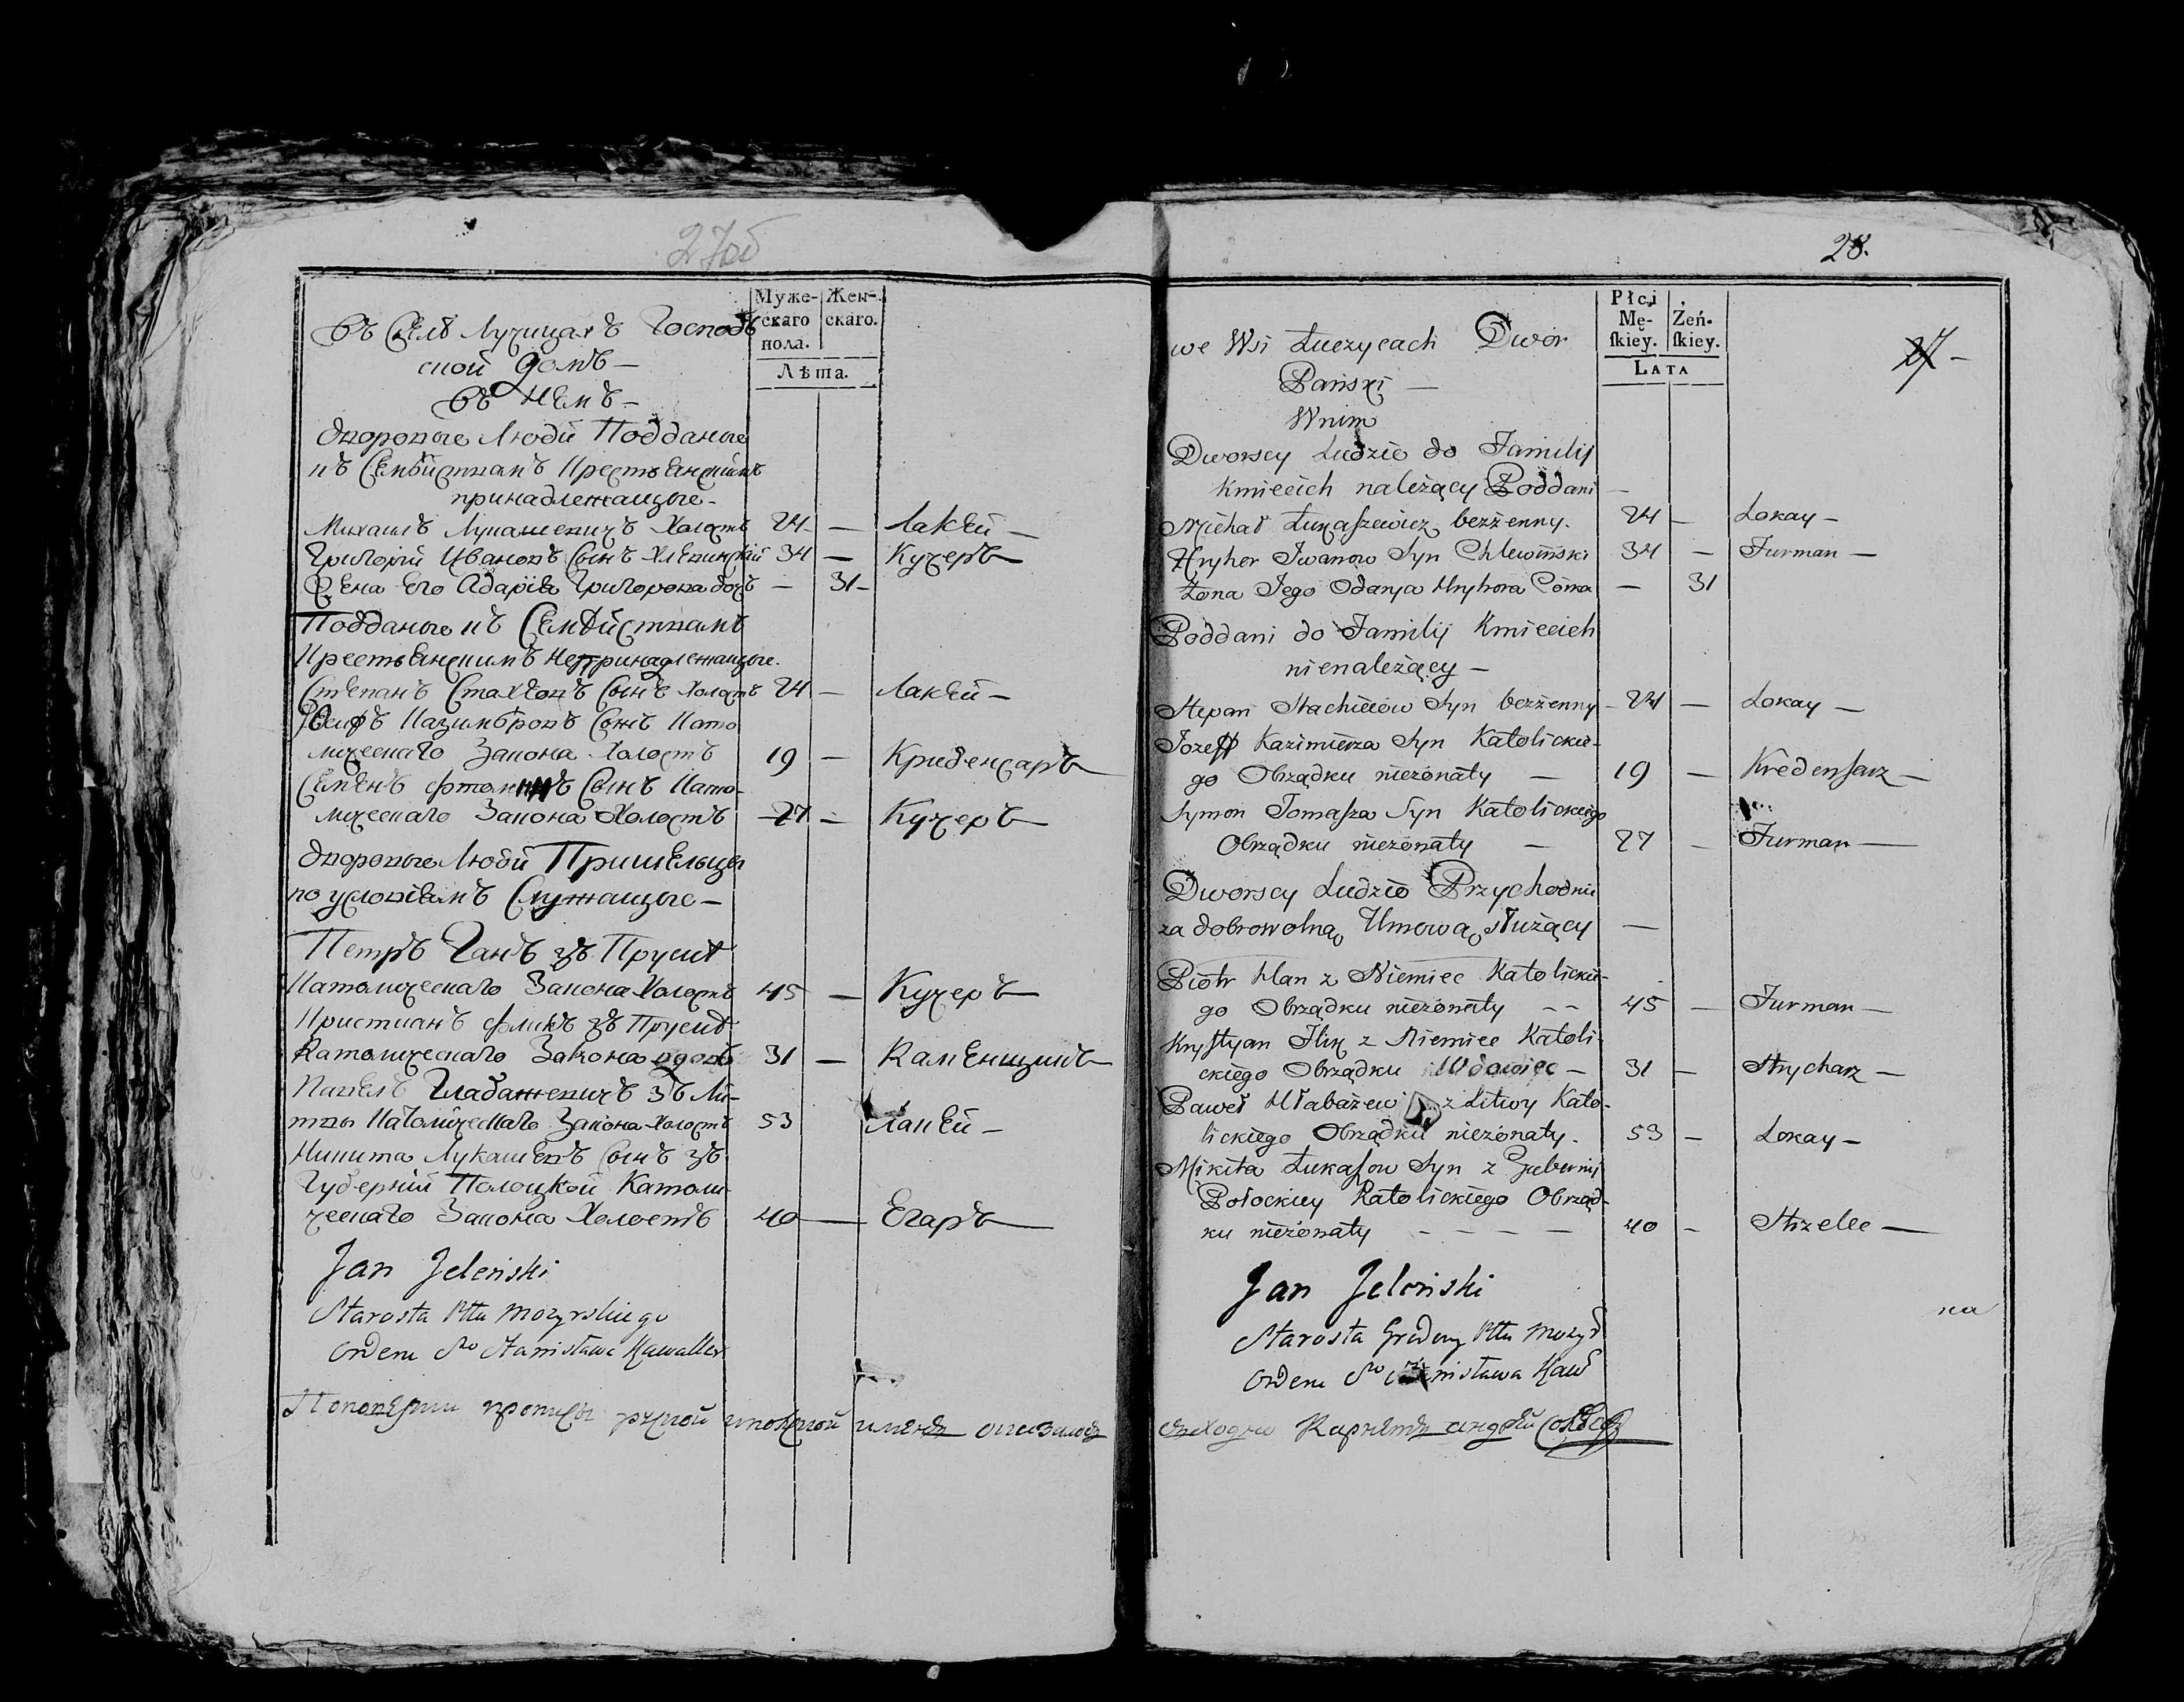 27об
Муже- Жен-
скаго скаго.
пола.
Лѣта.
Въ Селѣ Лучицахъ Господ
ской домъ —
Въ немъ —
дворовые Люди Подданые
къ Семѣйствамъ Крестьянскимъ
принадлежащые -
Михаилъ Лукашевичъ Холостъ 24 — Лакей —
Григорій Ивановъ Сынъ Хлевинскій 34 — Кучеръ
Жена Его Адарія Григорова дочъ — 31 -
Подданые къ Семѣйствамъ
Крестьянскимъ непринадлежащые.
Степанъ Стахѣевъ Сынъ Холостъ 24 — Лакей —
Іосифъ Казимѣровъ Сынъ Като
лическаго Закона Холостъ 19 — Криденсаръ
Семенъ Сынъ Като-
лическаго Закона Холостъ 27 — Кучеръ
дворовые Люди Пришельцы
по условіямъ Служащые —
Петръ Ганъ зъ Прусіи
Католическаго Закона Холостъ 45 — Кучеръ
Кристианъ Фликъ зъ Прусіи
Католическаго Закона вдовъ 31 — Каменщикъ
Павелъ Глабажевичъ зъ Ли-
твы Католическаго Закона Холостъ 53 Лакей —
Никита Лукашевъ Сынъ зъ
Губерніи Полоцкой Католи-
ческаго Закона Холостъ 40 — Егаръ
Jan Jeleński
Starosta Pttu Mozyrskiego
Orderu S° Stanisława Kawaller
28.
27 —
Płci
Mę- Zeń-
ſkiey. ſkiey.
LATA
we Wsi Łuczycach Dwór
Pański —
W nim
Dworscy Ludzie do Familij
Kmiecich należący Poddani —
Michał Łukaszewicz bezżenny. 24 — Lokay —
Hryhor Iwanow Syn Chlewiński 34 — Furman —
Żona Jego Odarya Hryhora Córka — 31
Poddani do Familij Kmiecich
nienależący —
Stepan Stachiejow Syn bezżenny - 24 — Lokay —
Jozeff Kazimierza Syn Katolickie-
go Obrządku nieżonaty — 19 — Kredenſarz —
Symon Tomaſza Syn Katolickiego
Obrządku nieżonaty — 27 — Furman —
Dworscy Ludzie Przychodni
za dobrowolną Umową służący —
Piotr Han z Niemiec Katolickie-
go Obrządku nieżonaty - - 45 — Furman —
Kryſtyan Flik z Niemiec Katoli-
ckiego Obrządku Wdowiec — 31 — Strycharz —
Paweł Hłabażew z Litwy Kato-
lickiego Obrządku nieżonaty. 53 — Lokay —
Mikita Łukaſow Syn z Gubernij
Połockiey Katolickiego Obrząd-
ku nieżonaty - - - — 40 — Strzelec —
Jan Jeleński
Starosta Grodowy Pttu Mozyr
Orderu S° Stanisława Kaw
на